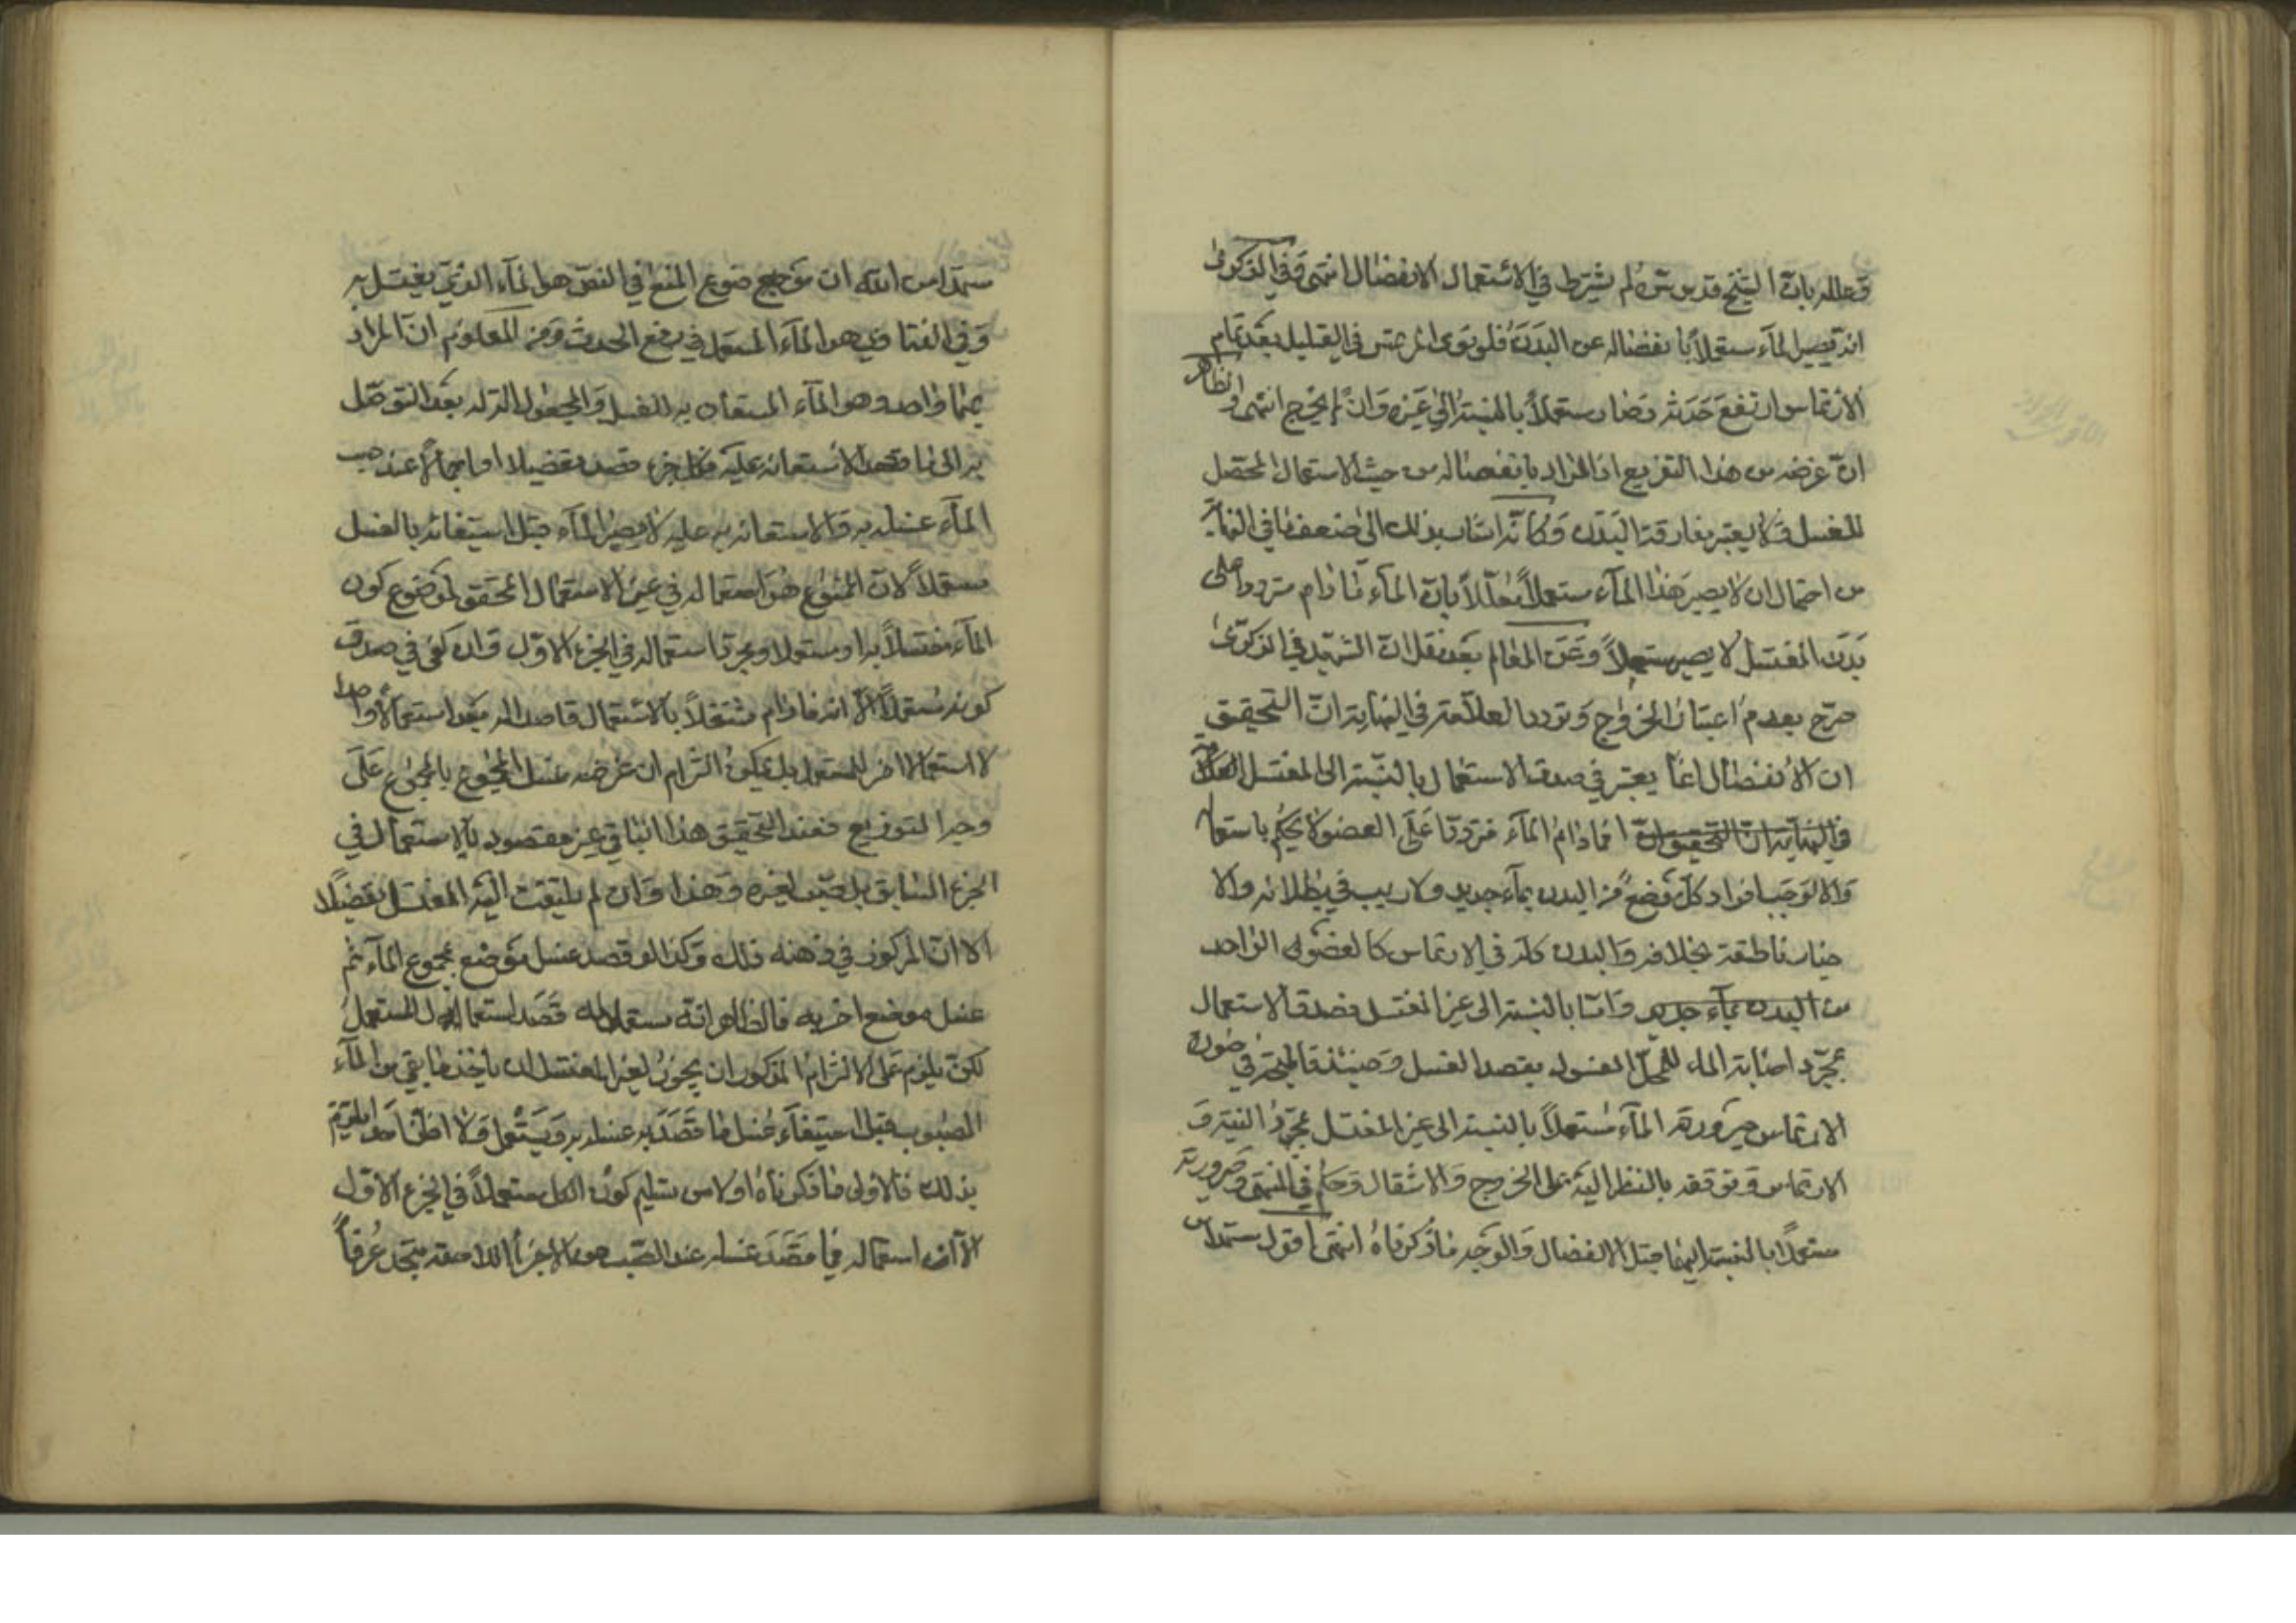 وعلله بان الشيخ قدس سره لم يشترط في الاستعمال الانفصال انتهى وفي الذكرى
انه يصير الماء مستعملا بانفصاله عن البدن فلو نوى المرتمس في القليل بعد تمام
الارتماس ارتفع حدثه وصار مستعملا بالنسبة الى غيره وان لم يخرج انتهى والظاهر
ان غرضه من هذا التفريع ان المراد بانفصاله من حيث الاستعمال المحصل
للغسل فلا يعتبر مفارقة البدن وكانه اشار بذلك الى ضعف ما في النهاية
من احتمال ان لا يصير هذا الماء مستعملا معللا بان الماء ما دام مترددا على
بدن المغتسل لا يصير مستعملا وعن المعالم بعد نقل ان الشهيد في الذكرى
صرح بعدم اعتبار الخروج وتردد العلامة في النهاية ان التحقيق
ان الانفصال انما يعتبر في صدق الاستعمال بالنسبة الى المغتسل
في النهاية ان التحقيق ان فما دام الماء مترددا على العضو لا يحكم باستعماله
والا لوجب افراد كل موضع من البدن بماء جديد ولا ريب في بطلانه والا
خبار ناطقة بخلافه والبدن كله في الارتماس كالعضو الواحد
من البدن بماء جديد واما بالنسبة الى غير المغتسل فصدق الاستعمال
بمجرد اصابة الماء للمحل المغسول بقصد الغسل وحينئذ فالمتجه في صورة
الارتماس صيرورة الماء مستعملا بالنسبة الى غير المغتسل بمجرد النية و
الارتماس وتوقفه بالنظر اليه على الخروج والانتقال وحكم في المنتهى بصيرورته
مستعملا بالنسبة اليهما قبل الانفصال والوجه ما ذكرناه انتهى اقول مستمدا من
مستمدا من الله ان موضوع المنع في النص هو الماء الذي يغتسل به
وفي الفتاوي هو الماء المستعمل في رفع الحدث ومن المعلوم ان المراد
بهما واحد وهو الماء المستعان به للغسل والمجعول الة له بعد التوصل
به الى ما قصد الاستعانة عليه فكل جزء قصد تفصيلا او اجمالا عند صب
الماء غسله به والاستعانة به عليه لا يصير الماء قبل استيفائه بالغسل
مستعملا لان الممنوع هو استعماله في غير الاستعمال المحقق لموضوع كون
الماء مغتسلا به او مستعملا ومجرد استعماله في الجزء الاول وان كفى في صدق
كونه مستعملا الا انه ما دام مشتغلا بالاستعمال قاصدا له يعد استعمالا واحدا
لا استعمالا اخر للمستعمل بل يمكن التزام ان غرضه غسل المجموع بالمجموع على
وجه التوزيع فعند التحقيق هذا الباقي غير مقصود بالاستعمال في
الجزء السابق بل صب لغيره وهذا وان لم يلتفت اليه المغتسل تفصيلا
الا ان المركوز في ذهنه ذلك وكذا لو قصد غسل موضع بمجموع الماء ثم
غسل موضع اخر به فالظاهر انه مستعمل لانه قصد استعمال المستعمل
لكن يلزم على الالتزام المذكور ان يجوز لغير المغتسل ان ياخذ ما بقي من الماء
المصبوب قبل استيفاء غسل ما قصد به غسله به ويستعمل ولا اظن احدا يلتزم
بذلك فالاولى ما ذكرناه اولا من تسليم كون الكل مستعملا في الجزء الاول
الا ان استعماله فيما قصد غسله عند الصب من الاجزاء اللاحقة يتحد عرفا